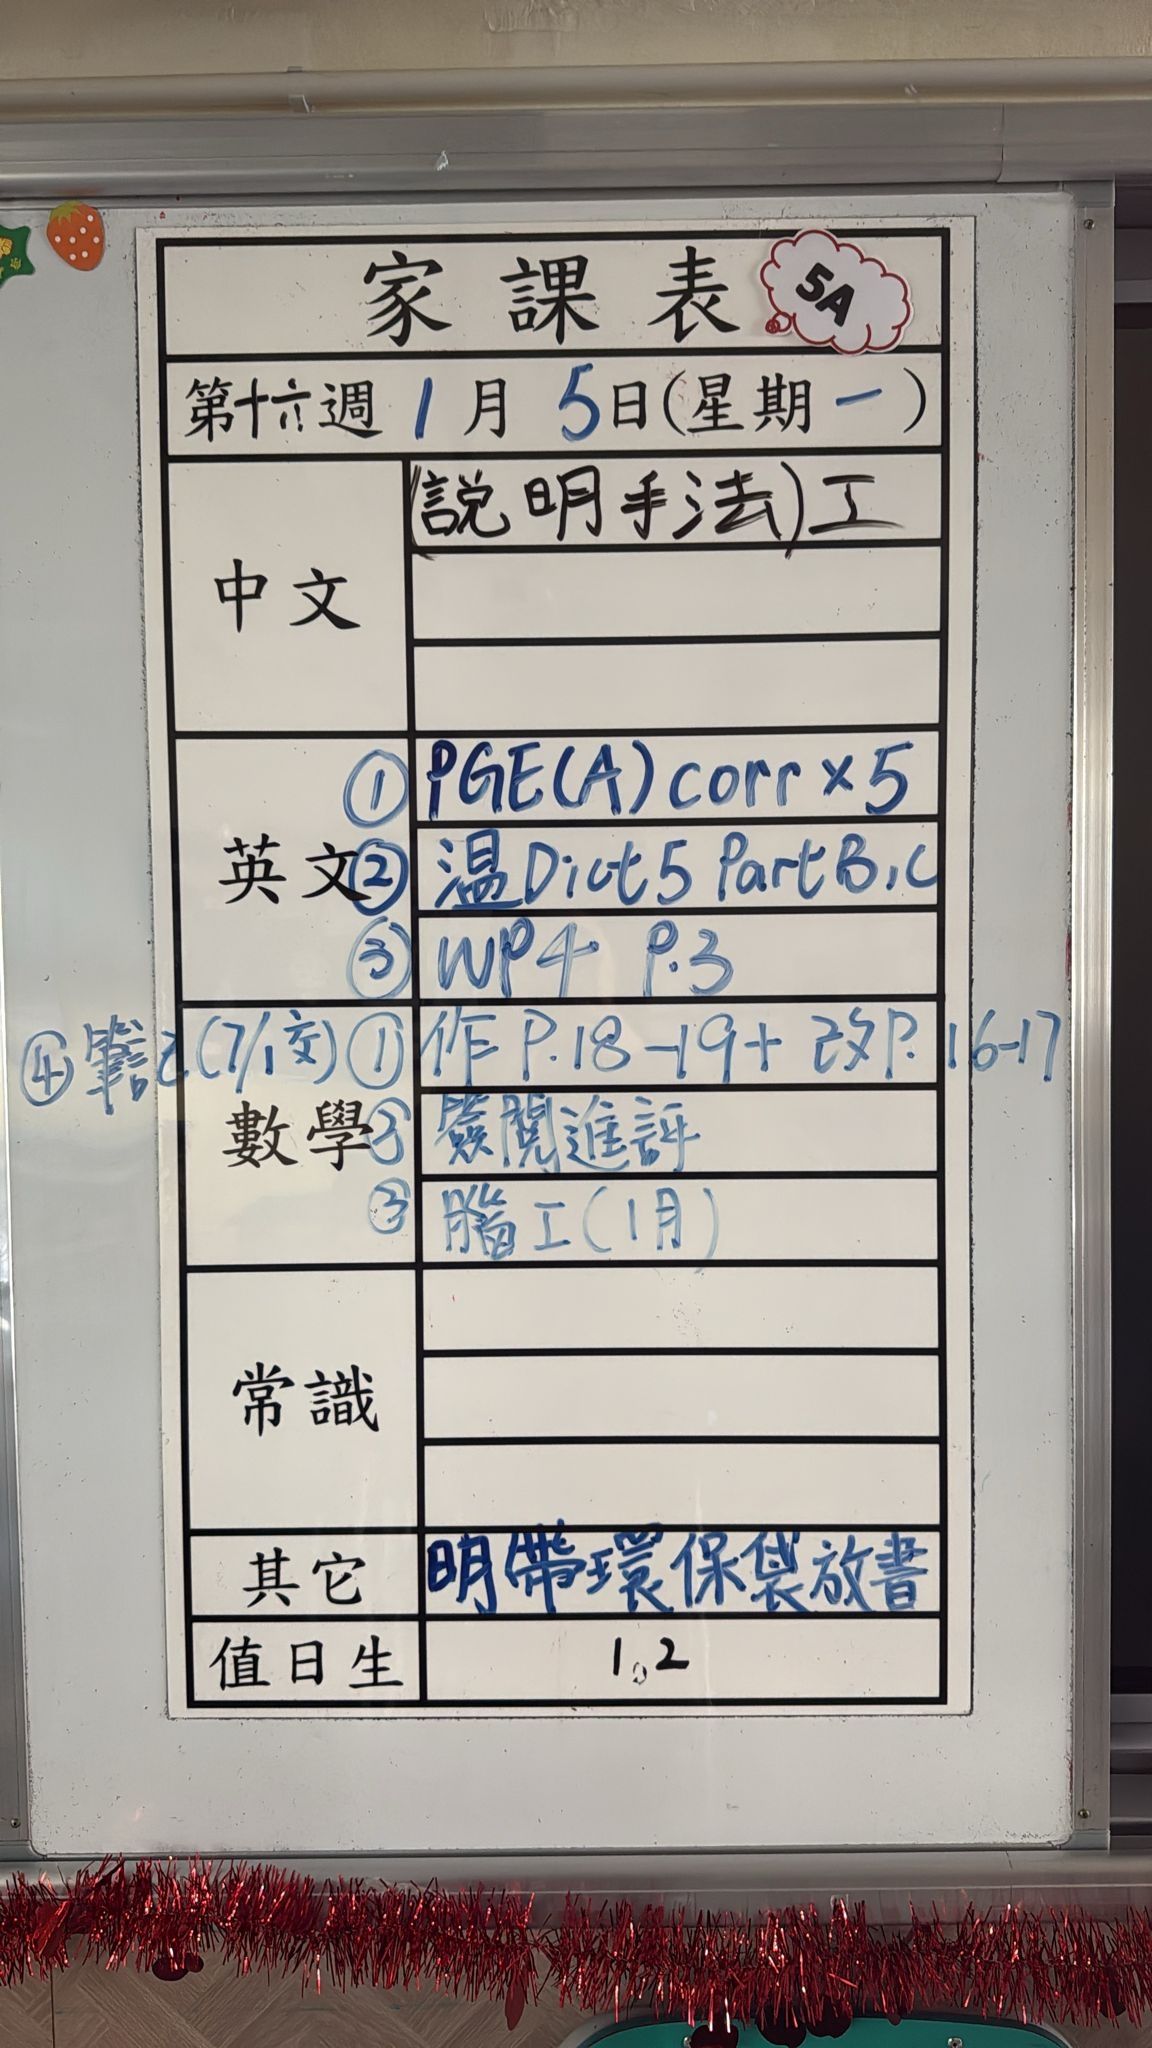 家課表 5A
第十六週 1月 5日(星期一)
中文
(説明手法)工
英文
① PGE(A) corr × 5
② 温Dict5 Part B,C
③ WP4 P.3
數學
① 作 P.18-19 + 改P.16-17
② 簽閱進評
③ 腦工(1月)
④ 筆記(7/1交)
常識
其它 明帶環保袋放書
值日生 1,2